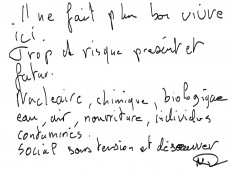 Il ne fait plus bon vivre
ici.
Trop de risque présent et
futur.
Nucléaire, chimique, biologique
eau, air, nourriture, individus
contaminés.
Social sous tension et